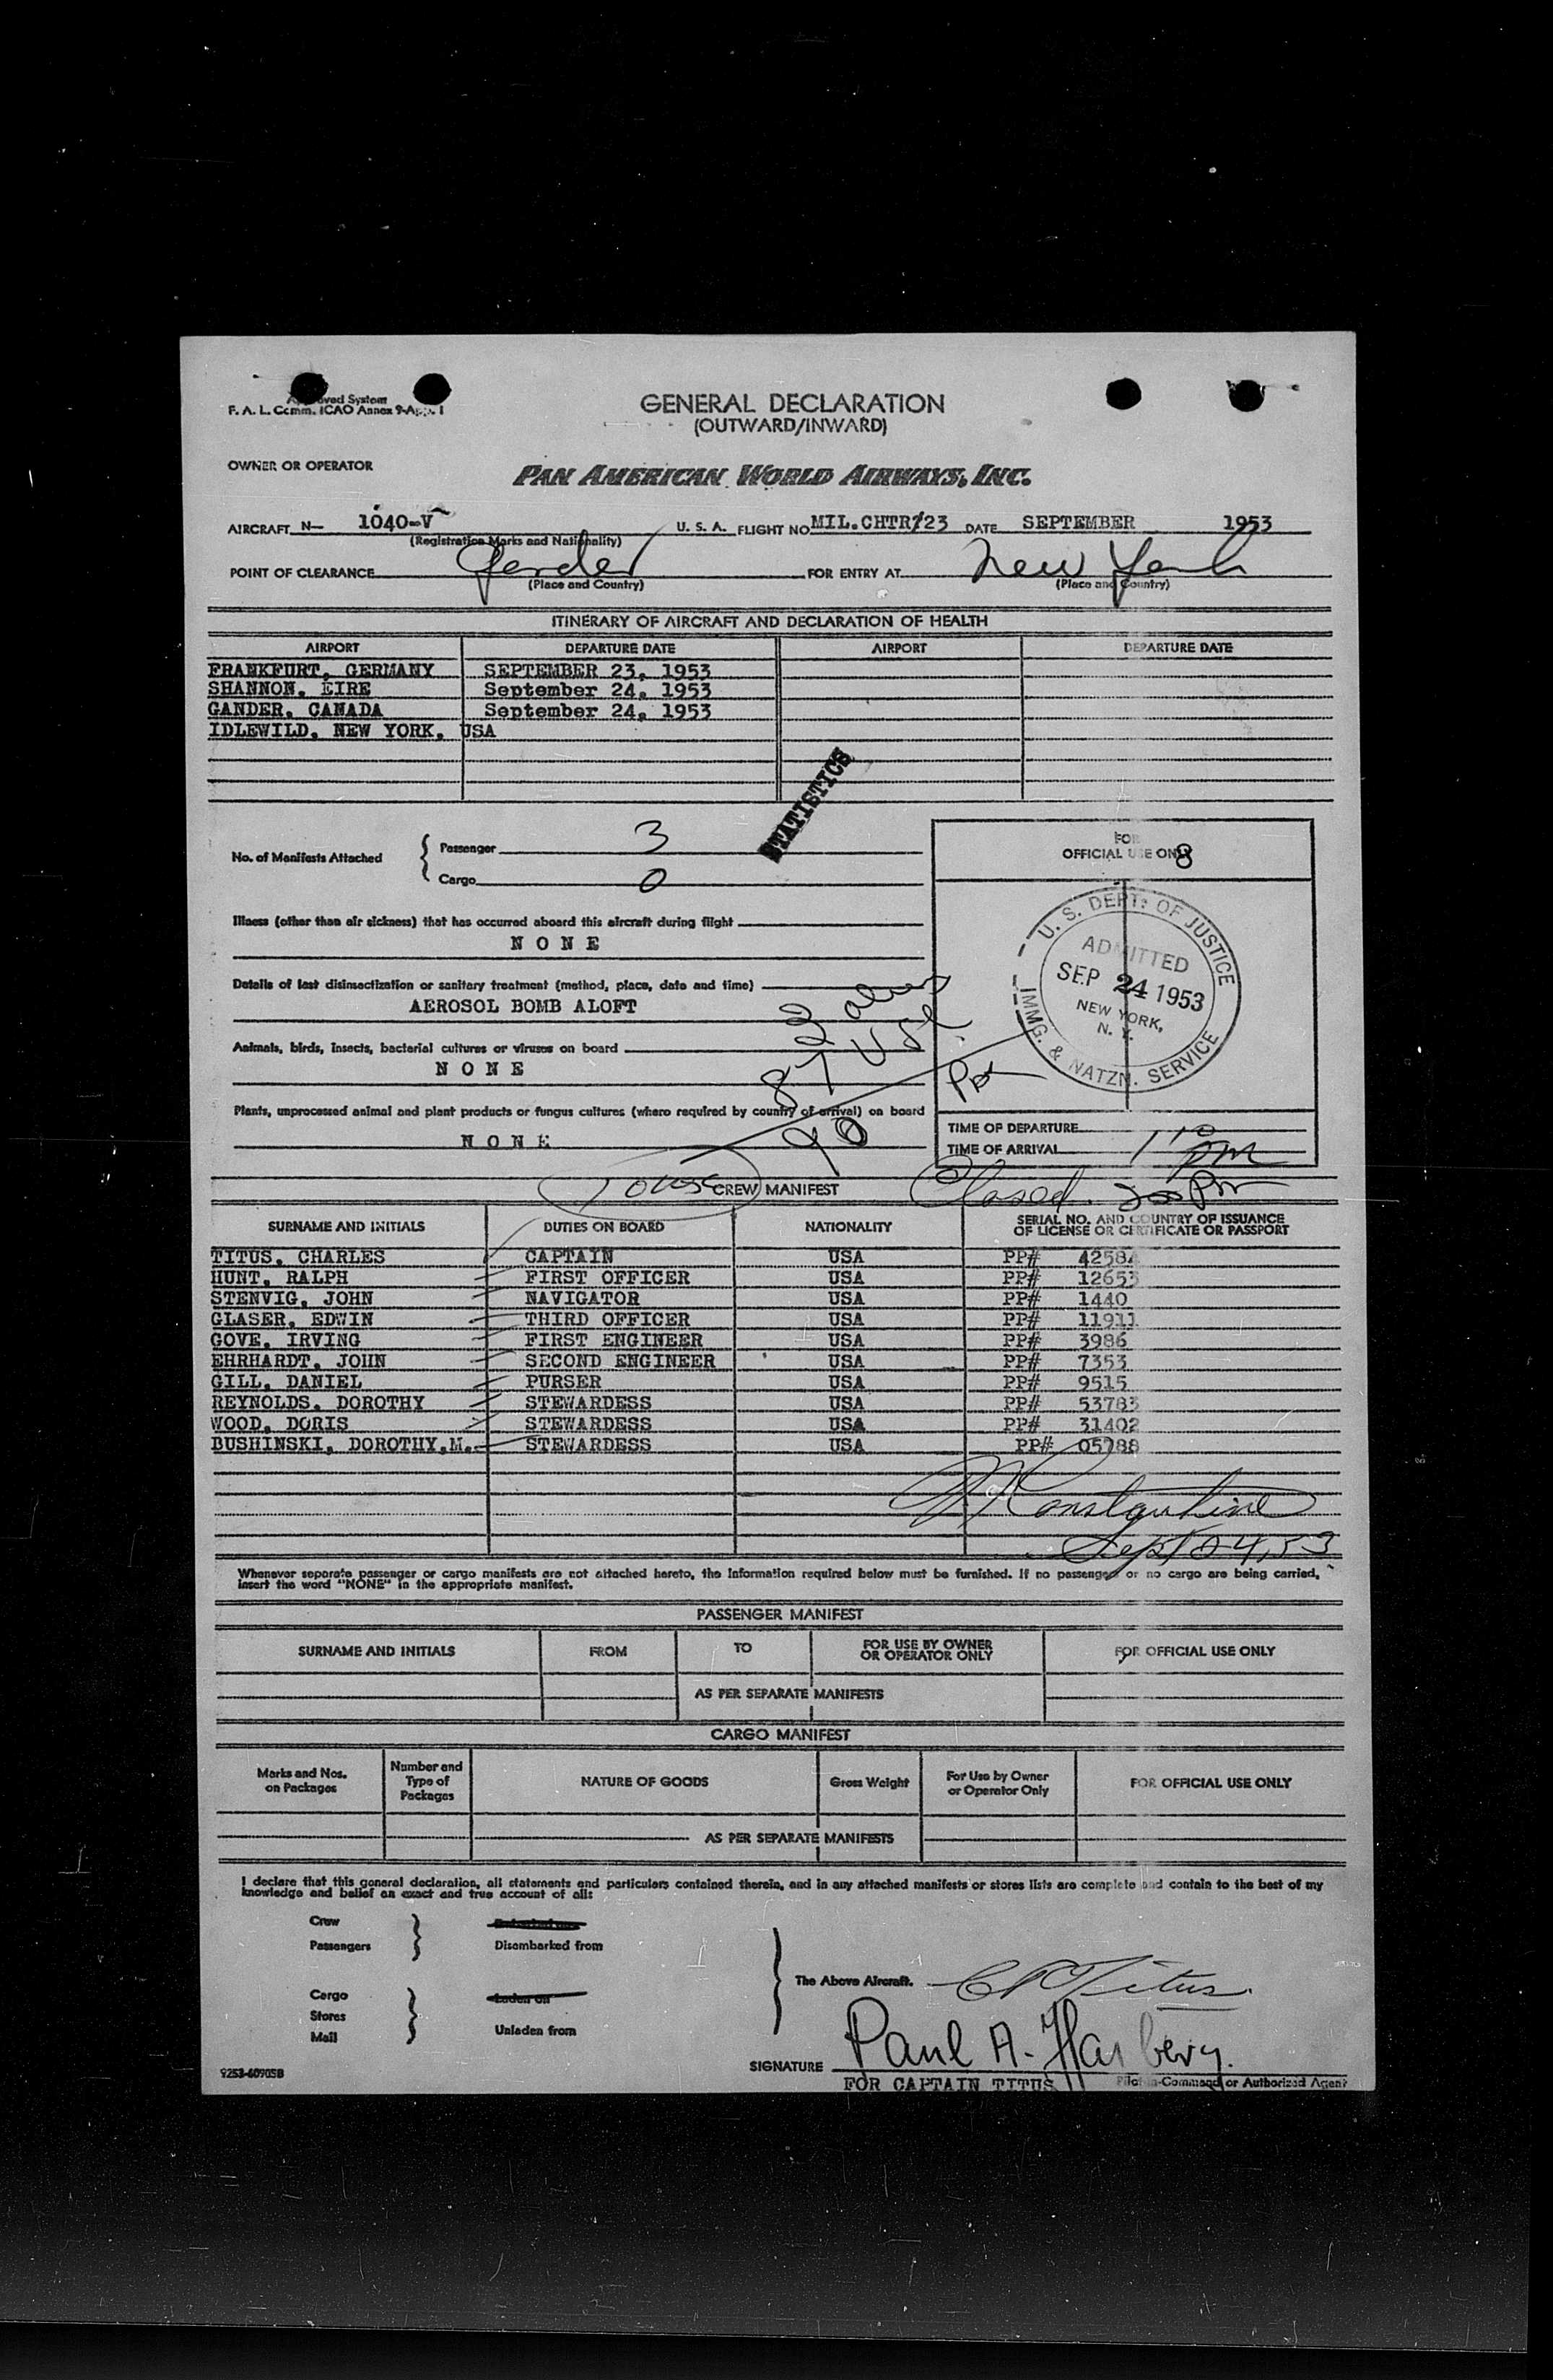 Approved System
F. A. L. Comm. ICAO Annex 9-App. 1
GENERAL DECLARATION
(OUTWARD/INWARD)
OWNER OR OPERATOR
PAN AMERICAN WORLD AIRWAYS, INC.
AIRCRAFT N- 1040-V U. S. A. FLIGHT NO MIL.CHTR/23 DATE SEPTEMBER 1953
(Registration Marks and Nationality)
POINT OF CLEARANCE Gander FOR ENTRY AT New York
(Place and Country) (Place and Country)
ITINERARY OF AIRCRAFT AND DECLARATION OF HEALTH
AIRPORT DEPARTURE DATE AIRPORT DEPARTURE DATE
FRANKFURT, GERMANY SEPTEMBER 23, 1953
SHANNON, EIRE September 24, 1953
GANDER, CANADA September 24, 1953
IDLEWILD, NEW YORK, USA
STATISTICS
No. of Manifests Attached
Passenger 3
Cargo 0
FOR
OFFICIAL USE ONLY 8
Illness (other than air sickness) that has occurred aboard this aircraft during flight
NONE
U. S. DEPT. OF JUSTICE
ADMITTED
SEP 24 1953
NEW YORK,
N. Y.
IMMG. & NATZN. SERVICE
Details of last disinsectization or sanitary treatment (method, place, date and time)
AEROSOL BOMB ALOFT
3 aliens
87 USC
90
Animals, birds, insects, bacterial cultures or viruses on board
NONE
Plants, unprocessed animal and plant products or fungus cultures (where required by country of arrival) on board
NONE
TIME OF DEPARTURE
TIME OF ARRIVAL 1 10 PM
CREW MANIFEST
Closed 2 00 PM
SURNAME AND INITIALS DUTIES ON BOARD NATIONALITY SERIAL NO. AND COUNTRY OF ISSUANCE
OF LICENSE OR CERTIFICATE OR PASSPORT
TITUS, CHARLES CAPTAIN USA PP# 42584
HUNT, RALPH FIRST OFFICER USA PP# 12653
STENVIG, JOHN NAVIGATOR USA PP# 1440
GLASER, EDWIN THIRD OFFICER USA PP# 11911
GOVE, IRVING FIRST ENGINEER USA PP# 3986
EHRHARDT, JOHN SECOND ENGINEER USA PP# 7353
GILL, DANIEL PURSER USA PP# 9515
REYNOLDS, DOROTHY STEWARDESS USA PP# 53783
WOOD, DORIS STEWARDESS USA PP# 31402
BUSHINSKI, DOROTHY,M. STEWARDESS USA PP# 05788
Konstantine
Sept 24, 53
Whenever separate passenger or cargo manifests are not attached hereto, the information required below must be furnished. If no passenger or no cargo are being carried,
insert the word "NONE" in the appropriate manifest.
PASSENGER MANIFEST
SURNAME AND INITIALS FROM TO FOR USE BY OWNER
OR OPERATOR ONLY FOR OFFICIAL USE ONLY
AS PER SEPARATE MANIFESTS
CARGO MANIFEST
Marks and Nos.
on Packages Number and
Type of
Packages NATURE OF GOODS Gross Weight For Use by Owner
or Operator Only FOR OFFICIAL USE ONLY
AS PER SEPARATE MANIFESTS
I declare that this general declaration, all statements and particulars contained therein, and in any attached manifests or stores lists are complete and contain to the best of my
knowledge and belief an exact and true account of all:
Crew
Passengers Disembarked from
The Above Aircraft. C P Titus
Cargo Laden on
Stores
Mail Unladen from
SIGNATURE Paul A. Harbevy.
9253-60905B
FOR CAPTAIN TITUS Pilot-in-Command or Authorized Agent